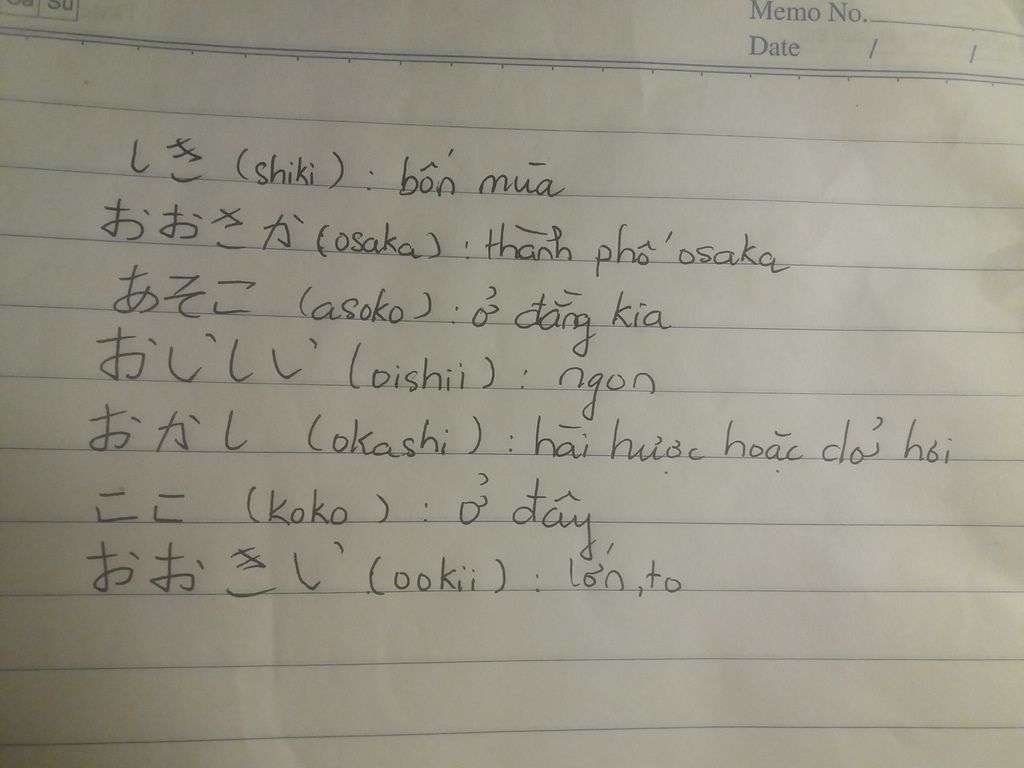 Sa Su
Memo No.
Date / /
しき (shiki) : bốn mùa
おおさか (osaka) : thành phố osaka
あそこ (asoko) : ở đằng kia
おいしい (oishii) : ngon
おかし (okashi) : hài hước hoặc dở hơi
ここ (koko) : ở đây
おおきい (ookii) : lớn, to